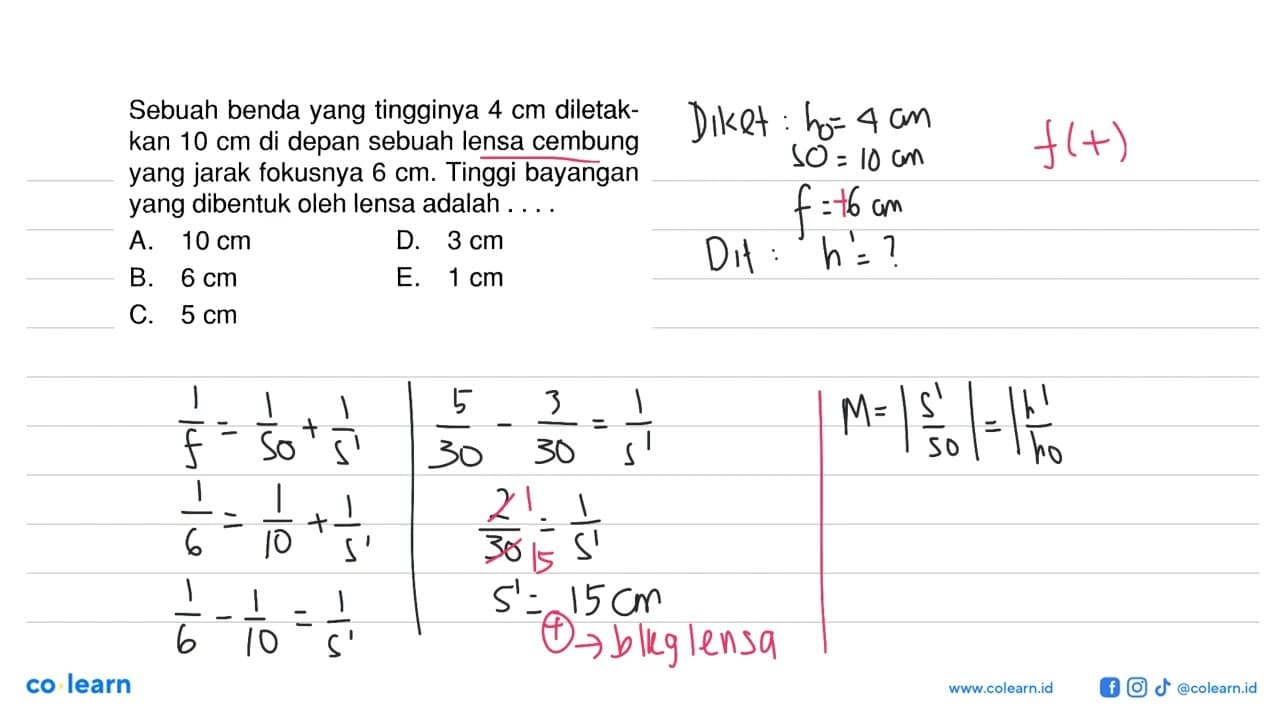 Sebuah benda yang tingginya 4 cm diletak-
kan 10 cm di depan sebuah lensa cembung
yang jarak fokusnya 6 cm. Tinggi bayangan
yang dibentuk oleh lensa adalah . . . .
A. 10 cm D. 3 cm
B. 6 cm E. 1 cm
C. 5 cm
Diket : ho = 4 cm
so = 10 cm
f = +6 cm
f(+)
Dit : h' = ?
1/f = 1/so + 1/s'
1/6 = 1/10 + 1/s'
1/6 - 1/10 = 1/s'
5/30 - 3/30 = 1/s'
2/30 1/15 = 1/s'
s' = 15 cm
(+) → blkg lensa
M = |s'/so| = |h'/ho
co learn
www.colearn.id
@colearn.id